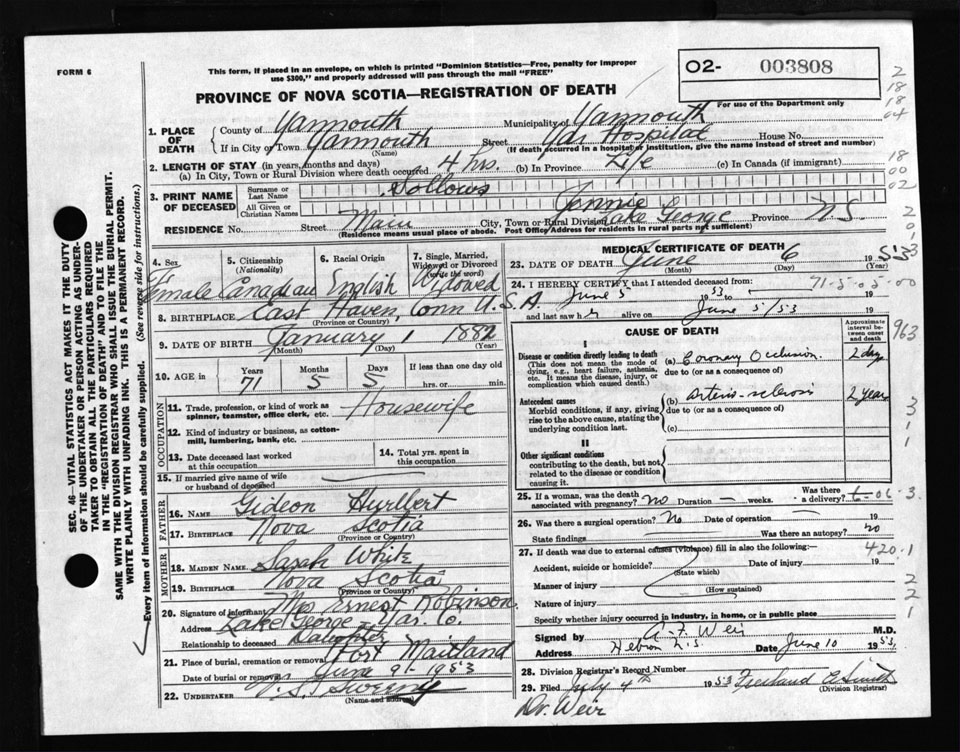 FORM 6
This form, if placed in an envelope, on which is printed "Dominion Statistics—Free, penalty for improper
use $300," and properly addressed will pass through the mail "FREE"
PROVINCE OF NOVA SCOTIA—REGISTRATION OF DEATH
O2- 003808
For use of the Department only
2
18
18
04
1. PLACE OF DEATH
County of Yarmouth Municipality of Yarmouth
If in City or Town Yarmouth (Name) Street Yar Hospital House No.
(If death occurred in a hospital or institution, give the name instead of street and number)
2. LENGTH OF STAY (in years, months and days)
(a) In City, Town or Rural Division where death occurred 4 hrs. (b) In Province Life (c) In Canada (if immigrant)
18
00
02
3. PRINT NAME OF DECEASED
Surname or Last Name Sollows
All Given or Christian Names Jennie
RESIDENCE No. Street Main City, Town or Rural Division Lake George Province N.S.
(Residence means usual place of abode. Post Office Address for residents in rural parts not sufficient)
4. Sex Female
5. Citizenship (Nationality) Canadian
6. Racial Origin English
7. Single, Married, Widowed or Divorced (write the word) Widowed
8. BIRTHPLACE East Haven, Conn U.S.A
(Province or Country)
9. DATE OF BIRTH January 1 1882
(Month) (Day) (Year)
10. AGE in Years 71 Months 5 Days 5 If less than one day old hrs. or min.
OCCUPATION
11. Trade, profession, or kind of work as spinner, teamster, office clerk, etc. Housewife
12. Kind of industry or business, as cotton-mill, lumbering, bank, etc.
13. Date deceased last worked at this occupation
14. Total yrs. spent in this occupation
15. If married give name of wife or husband of deceased
FATHER
16. NAME Gideon Hurlbert
17. BIRTHPLACE Nova Scotia
(Province or Country)
MOTHER
18. MAIDEN NAME Sarah White
19. BIRTHPLACE Nova Scotia
(Province or Country)
20. Signature of informant Mrs Ernest Robinson
Address Lake George Yar. Co.
Relationship to deceased Daughter
21. Place of burial, cremation or removal Port Maitland
Date of burial or removal June 9th 1953
22. UNDERTAKER Sweeny
MEDICAL CERTIFICATE OF DEATH
23. DATE OF DEATH June 6 1953
(Month) (Day) (Year)
24. I HEREBY CERTIFY that I attended deceased from:
June 5 1953 to 19
and last saw h alive on June 5/53 19
71-5-05-00
CAUSE OF DEATH
Approximate interval between onset and death
963
I
Disease or condition directly leading to death
(This does not mean the mode of dying, e.g., heart failure, asthenia, etc. It means the disease, injury, or complication which caused death.)
(a) Coronary Occlusion. 2 days
due to (or as a consequence of)
Antecedent causes
Morbid conditions, if any, giving rise to the above cause, stating the underlying condition last.
(b) Arterio-sclerosis 2 years
due to (or as a consequence of)
(c)
II
Other significant conditions
contributing to the death, but not related to the disease or condition causing it.
25. If a woman, was the death associated with pregnancy? no Duration — weeks. Was there a delivery?
6-06.3
26. Was there a surgical operation? No Date of operation — 19
State findings Was there an autopsy? no
27. If death was due to external causes (violence) fill in also the following:—
420.1
Accident, suicide or homicide? Date of injury 19
(State which)
Manner of injury
(How sustained)
Nature of injury
Specify whether injury occurred in industry, in home, or in public place
Signed by A. F. Weir M.D.
Address Hebron N.S. Date June 10 1953
28. Division Registrar's Record Number
29. Filed July 4th 1953 Freeland E. Smith
(Division Registrar)
Dr. Weir
SEC. 46—VITAL STATISTICS ACT MAKES IT THE DUTY
OF THE UNDERTAKER OR PERSON ACTING AS UNDER-
TAKER TO OBTAIN ALL THE PARTICULARS REQUIRED
IN THE "REGISTRATION OF DEATH" AND TO FILE THE
SAME WITH THE DIVISION REGISTRAR WHO SHALL ISSUE THE BURIAL PERMIT.
WRITE PLAINLY WITH UNFADING INK. THIS IS A PERMANENT RECORD.
Every item of information should be carefully supplied. (See reverse side for instructions.)